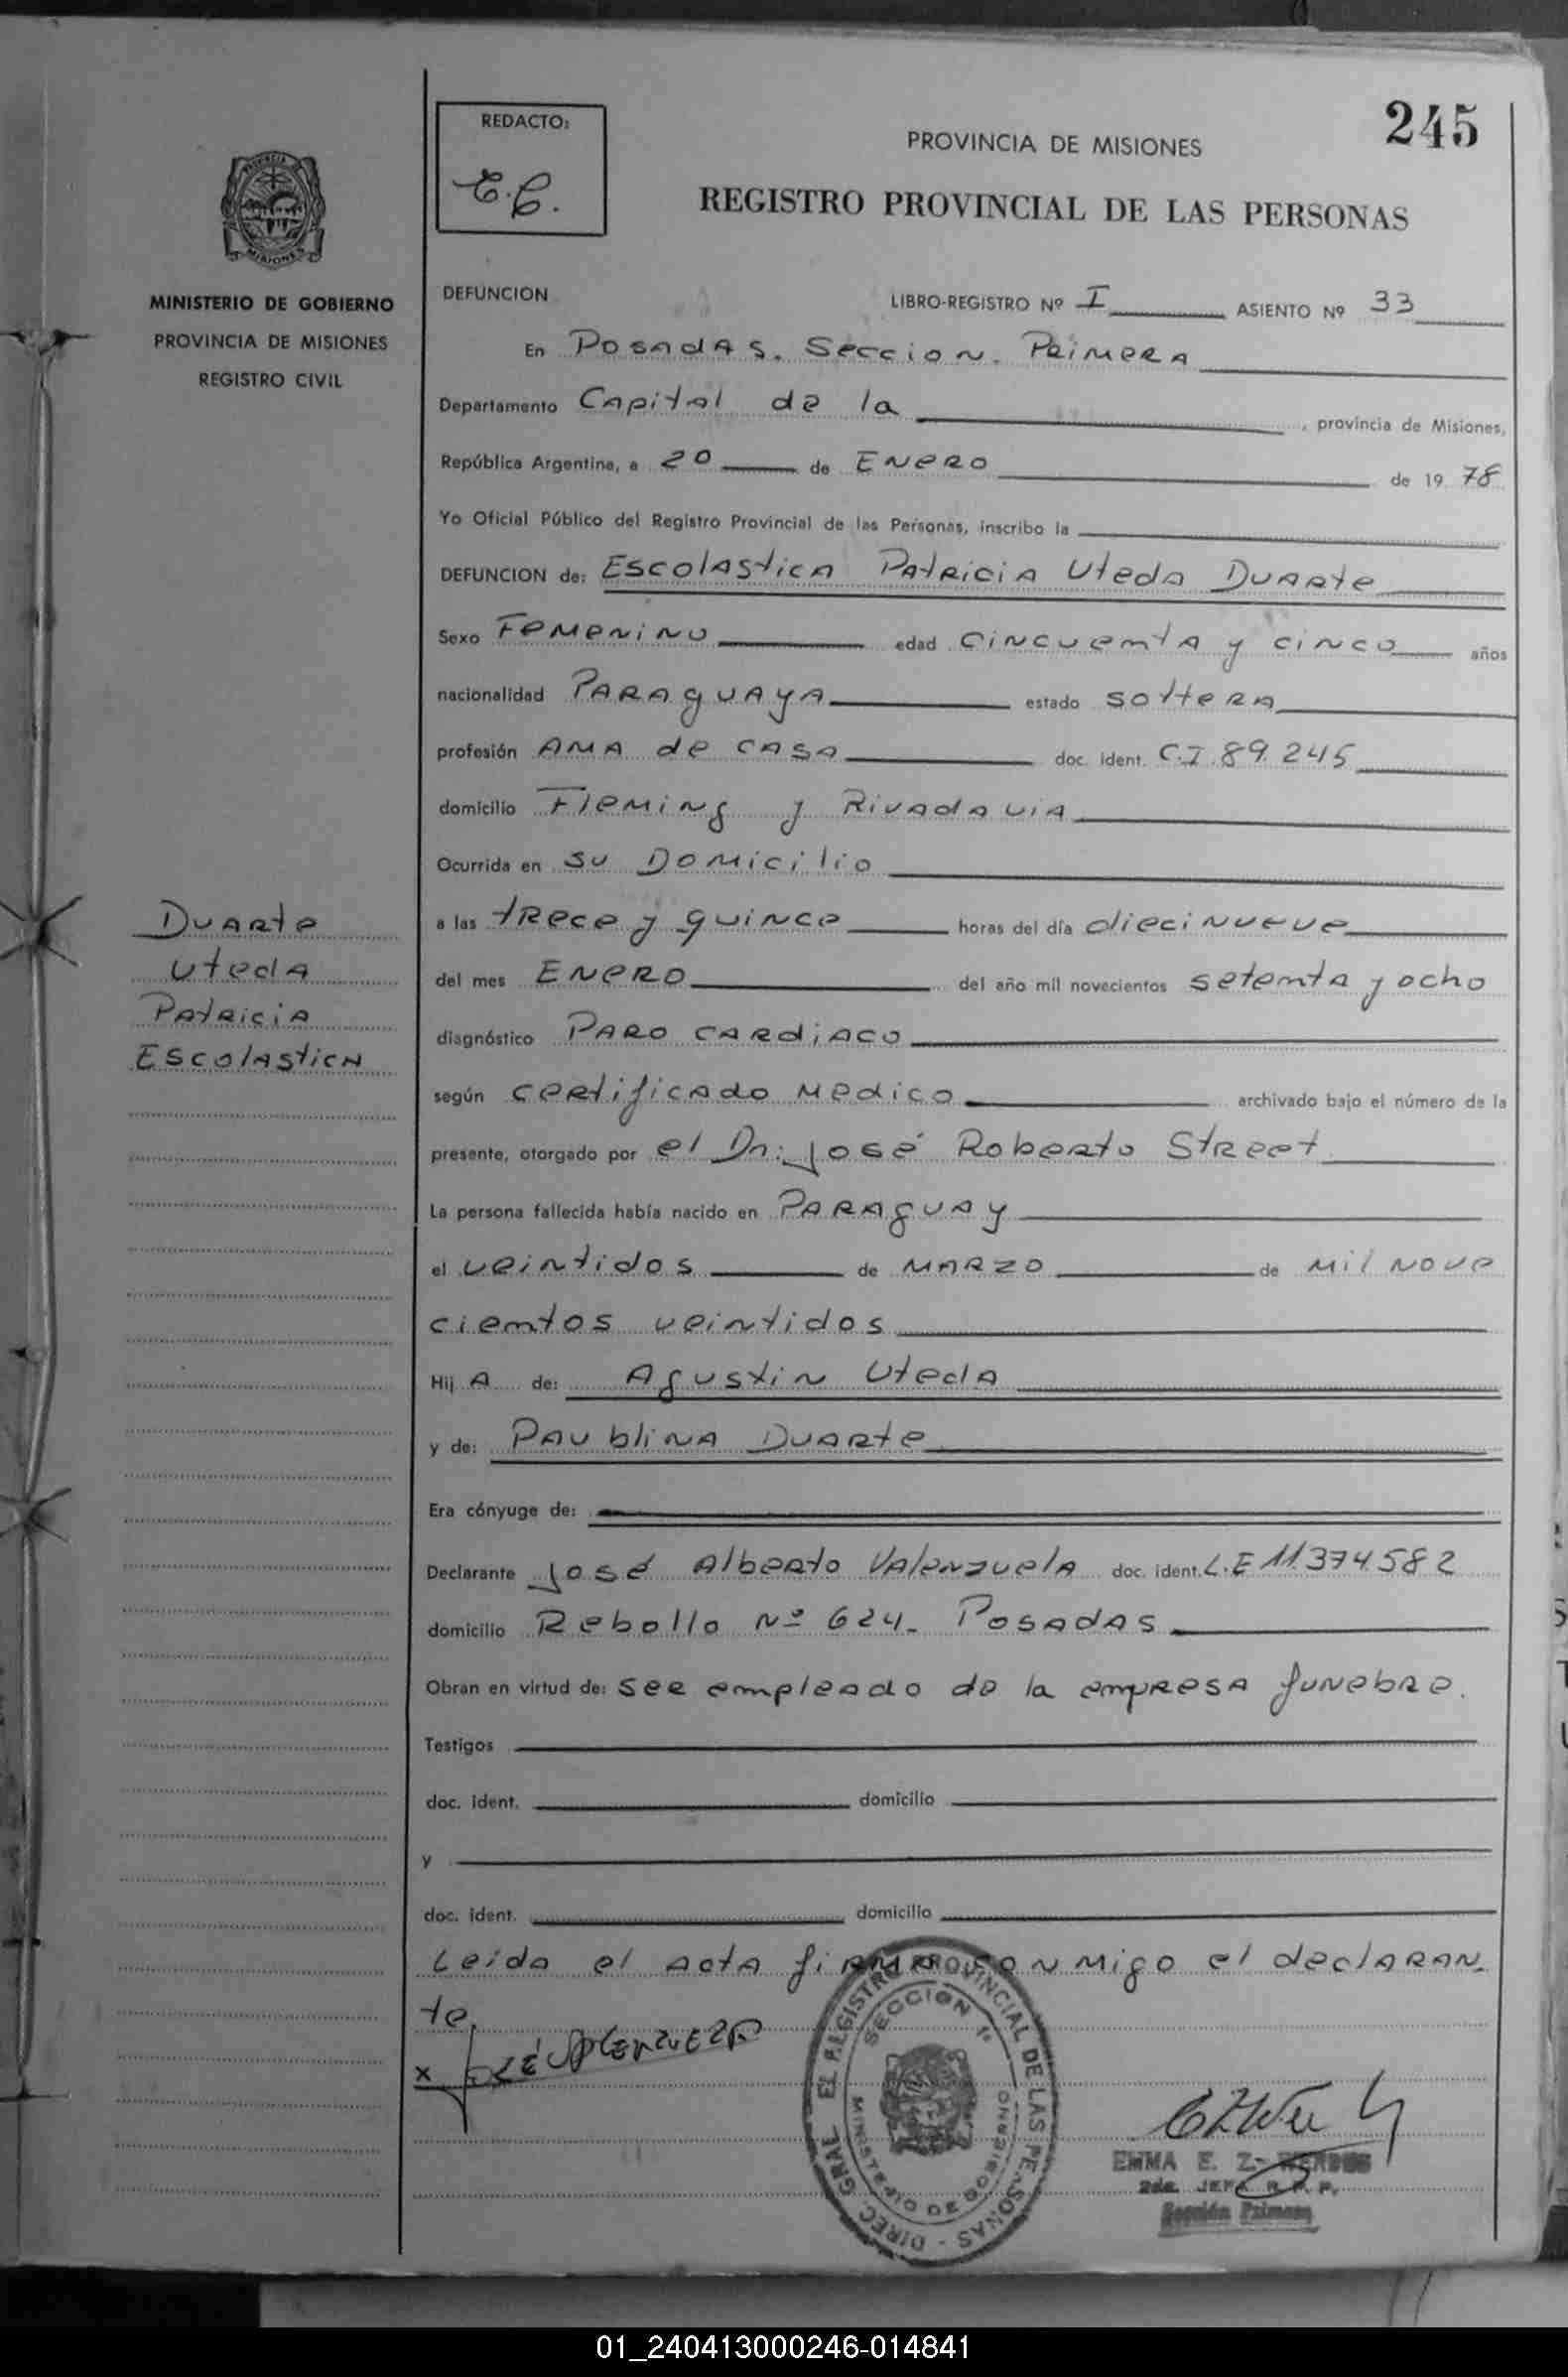 245
REDACTO:
PROVINCIA DE MISIONES
REGISTRO PROVINCIAL DE LAS PERSONAS
PROVINCIA DE
MISIONES
MINISTERIO DE GOBIERNO
PROVINCIA DE MISIONES
REGISTRO CIVIL
DEFUNCION LIBRO-REGISTRO Nº I ASIENTO Nº 33
En Posadas. Seccion. Primera
Departamento Capital de la , provincia de Misiones,
República Argentina, a 20 de Enero de 19 78
Yo Oficial Público del Registro Provincial de las Personas, inscribo la
DEFUNCION de: Escolastica Patricia Uteda Duarte
Sexo Femenino edad cincuenta y cinco años
nacionalidad Paraguaya estado soltera
profesión Ama de casa doc. ident. C.I. 89.245
domicilio Fleming y Rivadavia
Ocurrida en su Domicilio
a las trece y quince horas del día diecinueve
del mes Enero del año mil novecientos setenta y ocho
diagnóstico Paro cardiaco
según certificado medico archivado bajo el número de la
presente, otorgado por el Dr. José Roberto Street
La persona fallecida había nacido en Paraguay
el veintidos de Marzo de mil nove
cientos veintidos
Hij A de: Agustin Uteda
y de: Paublina Duarte
Era cónyuge de:
Declarante José Alberto Valenzuela doc. ident. L.E 11.374.582
domicilio Rebollo Nº 624. Posadas
Obran en virtud de: ser empleado de la empresa funebre.
Testigos
doc. ident. domicilio
y
doc. ident. domicilio
Leida el acta firma conmigo el declaran-
te.
Duarte
Uteda
Patricia
Escolastica
x José Valenzuela
DIREC. GRAL. EL REGISTRO PROVINCIAL DE LAS PERSONAS
SECCION 1ª
MINISTERIO DE GOBIERNO
EMMA E. Z.
2da. JEFA R. P. P.
Sección Primera
01_240413000246-014841